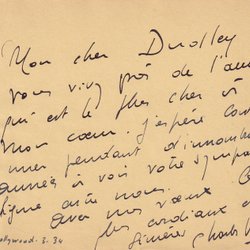 Mon cher Dudley
vous vivez près de l'am
qui est le plus cher à
mon coeur. J'espère con
nuer pendant d'innomb
années à voir votre symp
ligne entre nous.
avec mes voeux
les cordiaux
sincère Charles
Hollywood. 3. 34